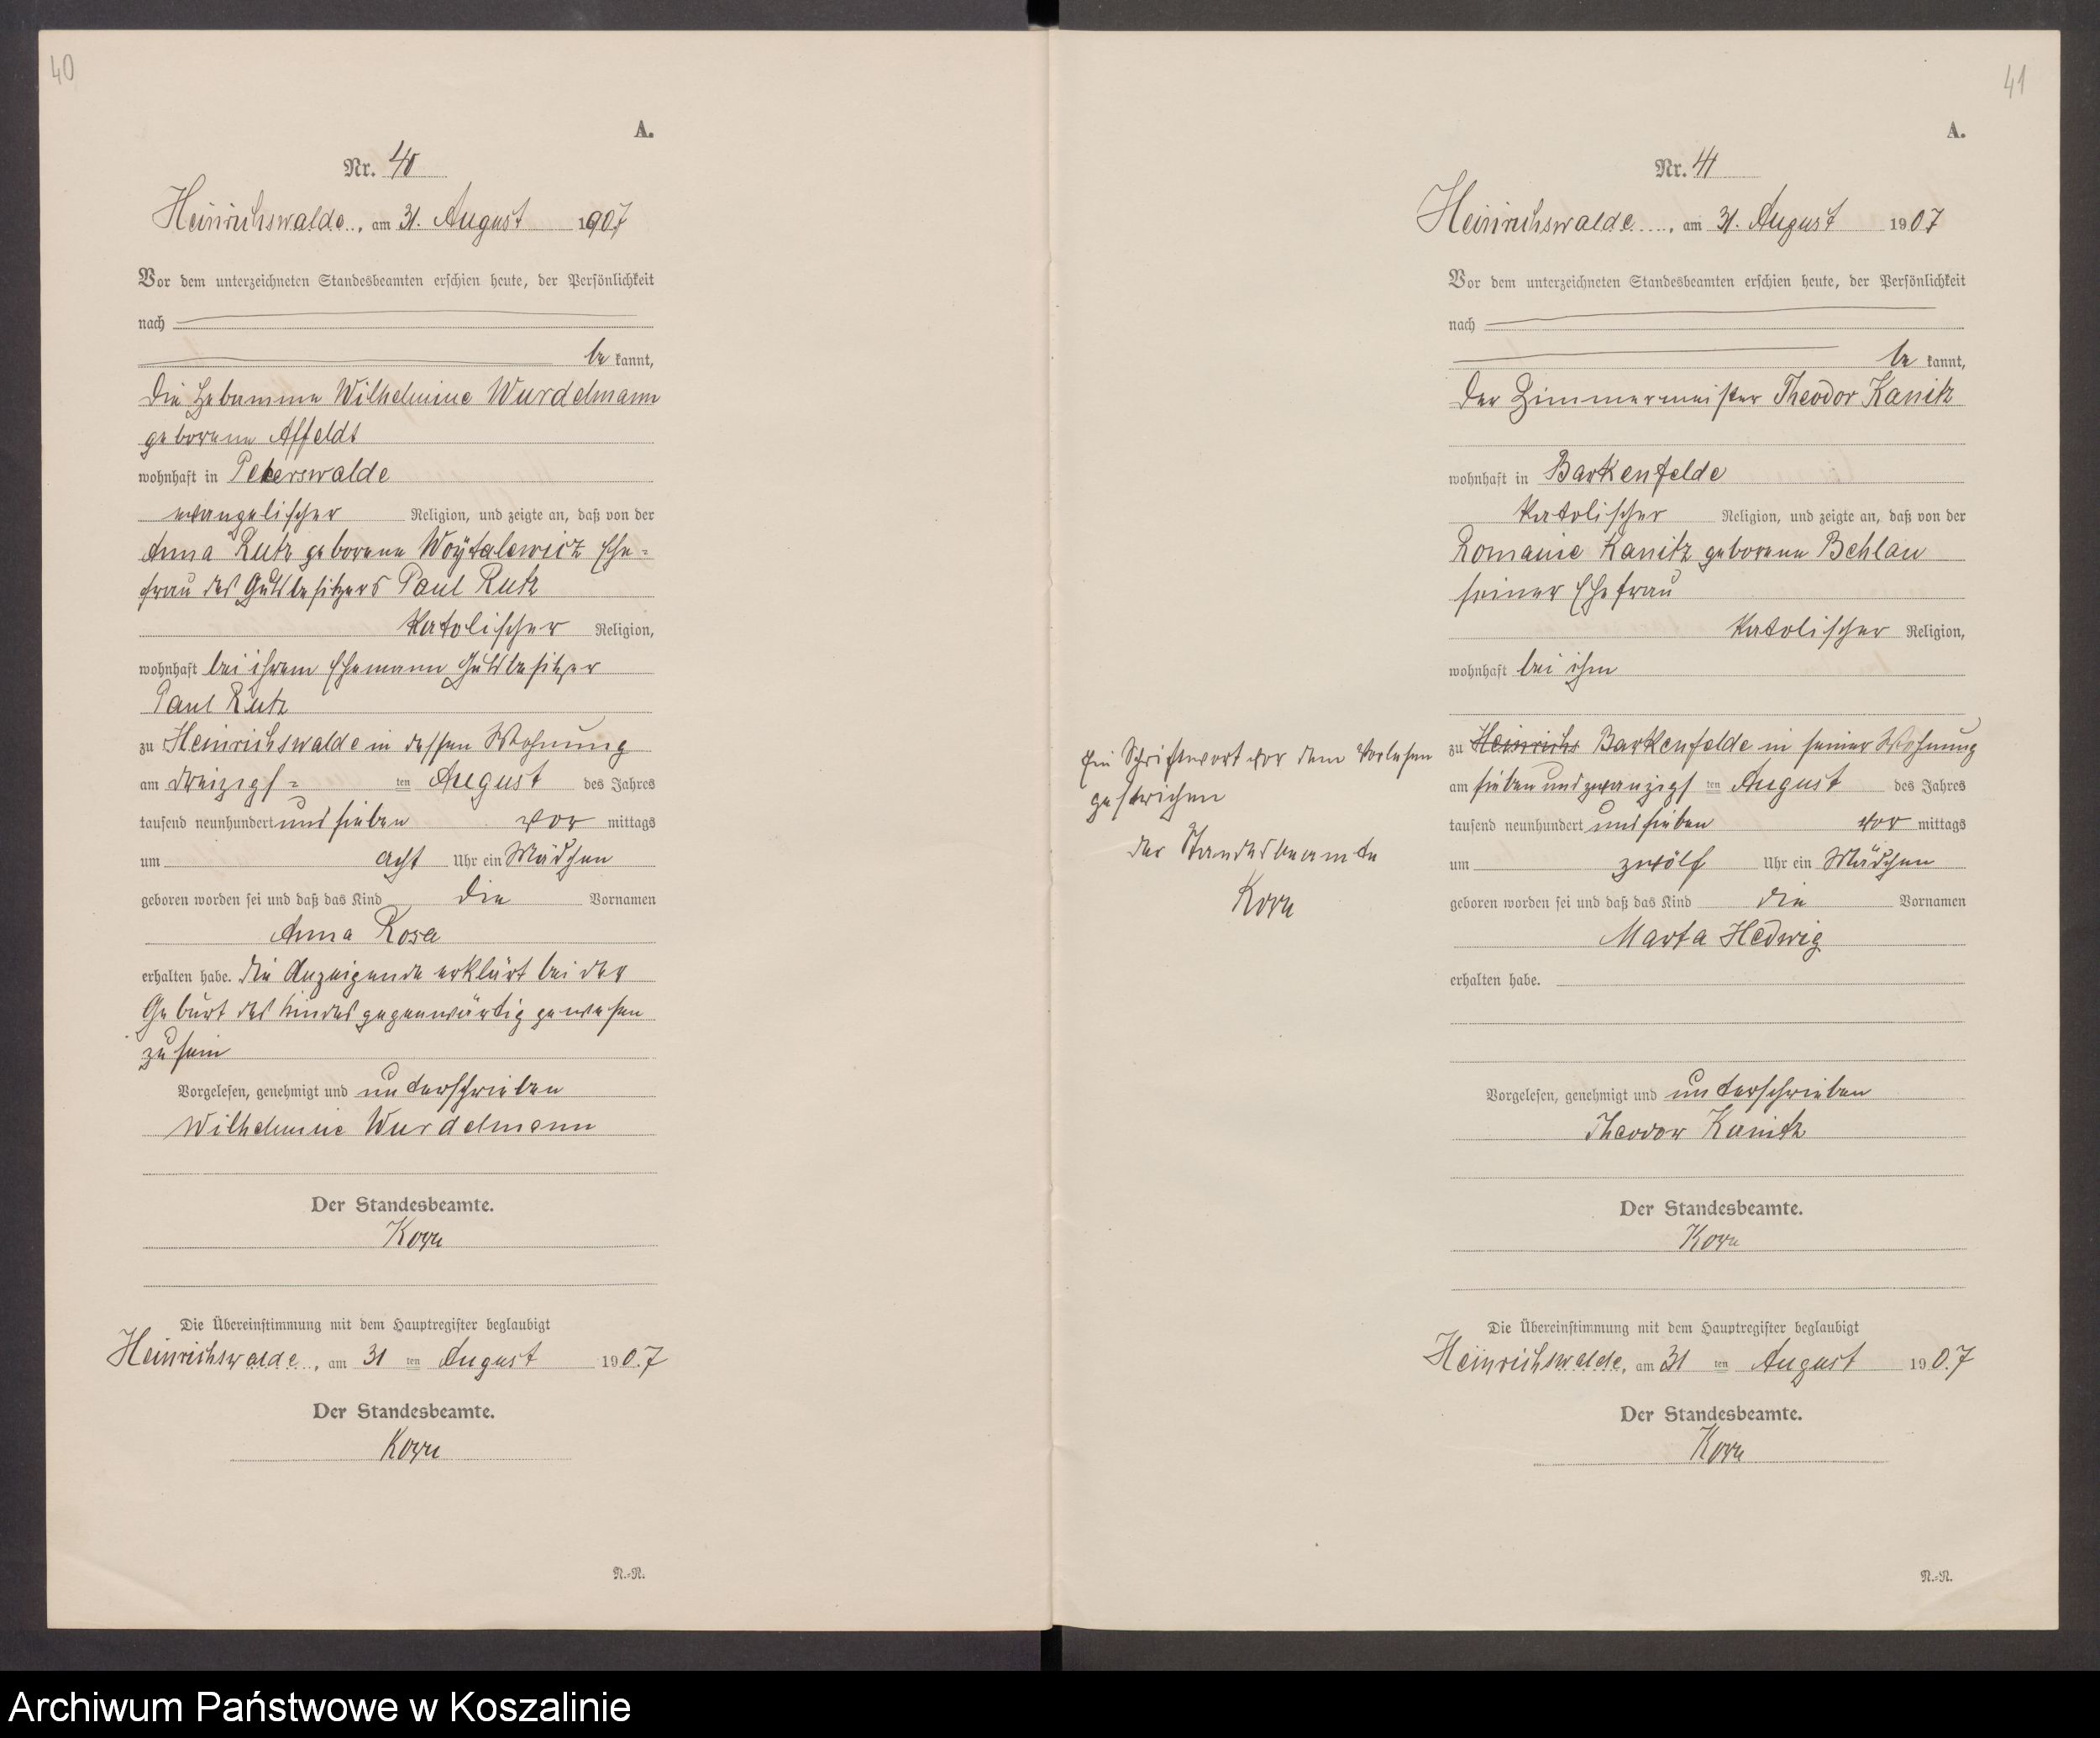 40
A.
Nr. 40
Heinrichswalde, am 31. August 1907
Vor dem unterzeichneten Standesbeamten erschien heute, der Persönlichkeit
nach
be kannt,
die Hebamme Wilhelmine Wurdelmann
geborene Affeldt
wohnhaft in Peterswalde
evangelischer Religion, und zeigte an, daß von der
Anna Rutz geborene Woytalewicz Ehe=
frau des Gutsbesitzers Paul Rutz
katolischer Religion,
wohnhaft bei ihrem Ehemann Gutsbesitzer
Paul Rutz
zu Heinrichswalde in dessen Wohnung
am dreizigs= ten August des Jahres
tausend neunhundert und sieben vor mittags
um acht Uhr ein Mädchen
geboren worden sei und daß das Kind die Vornamen
Anna Rosa
erhalten habe. Die Anzeigende erklärt bei der
Geburt des Kindes gegenwärtig gewesen
zu sein
Vorgelesen, genehmigt und unterschrieben
Wilhelmine Wurdelmann
Der Standesbeamte.
Korn
Die Übereinstimmung mit dem Hauptregister beglaubigt
Heinrichswalde, am 31 ten August 1907
Der Standesbeamte.
Korn
N.=N.
41
A.
Nr. 41
Heinrichswalde, am 31. August 1907
Vor dem unterzeichneten Standesbeamten erschien heute, der Persönlichkeit
nach
be kannt,
der Zimmermeister Theodor Kanitz
wohnhaft in Barkenfelde
katolischer Religion, und zeigte an, daß von der
Romanie Kanitz geborene Behlau
seiner Ehefrau
katolischer Religion,
wohnhaft bei ihm
zu Heinrichs Barkenfelde in seiner Wohnung
am siebenundzwanzigs ten August des Jahres
tausend neunhundert und sieben vor mittags
um zwölf Uhr ein Mädchen
geboren worden sei und daß das Kind die Vornamen
Marta Hedwig
erhalten habe.
Ein Schriftwort vor dem Vorlesen
gestrichen
der Standesbeamte
Korn
Vorgelesen, genehmigt und unterschrieben
Theodor Kanitz
Der Standesbeamte.
Korn
Die Übereinstimmung mit dem Hauptregister beglaubigt
Heinrichswalde, am 31 ten August 1907
Der Standesbeamte.
Korn
N.=N.
Archiwum Państwowe w Koszalinie